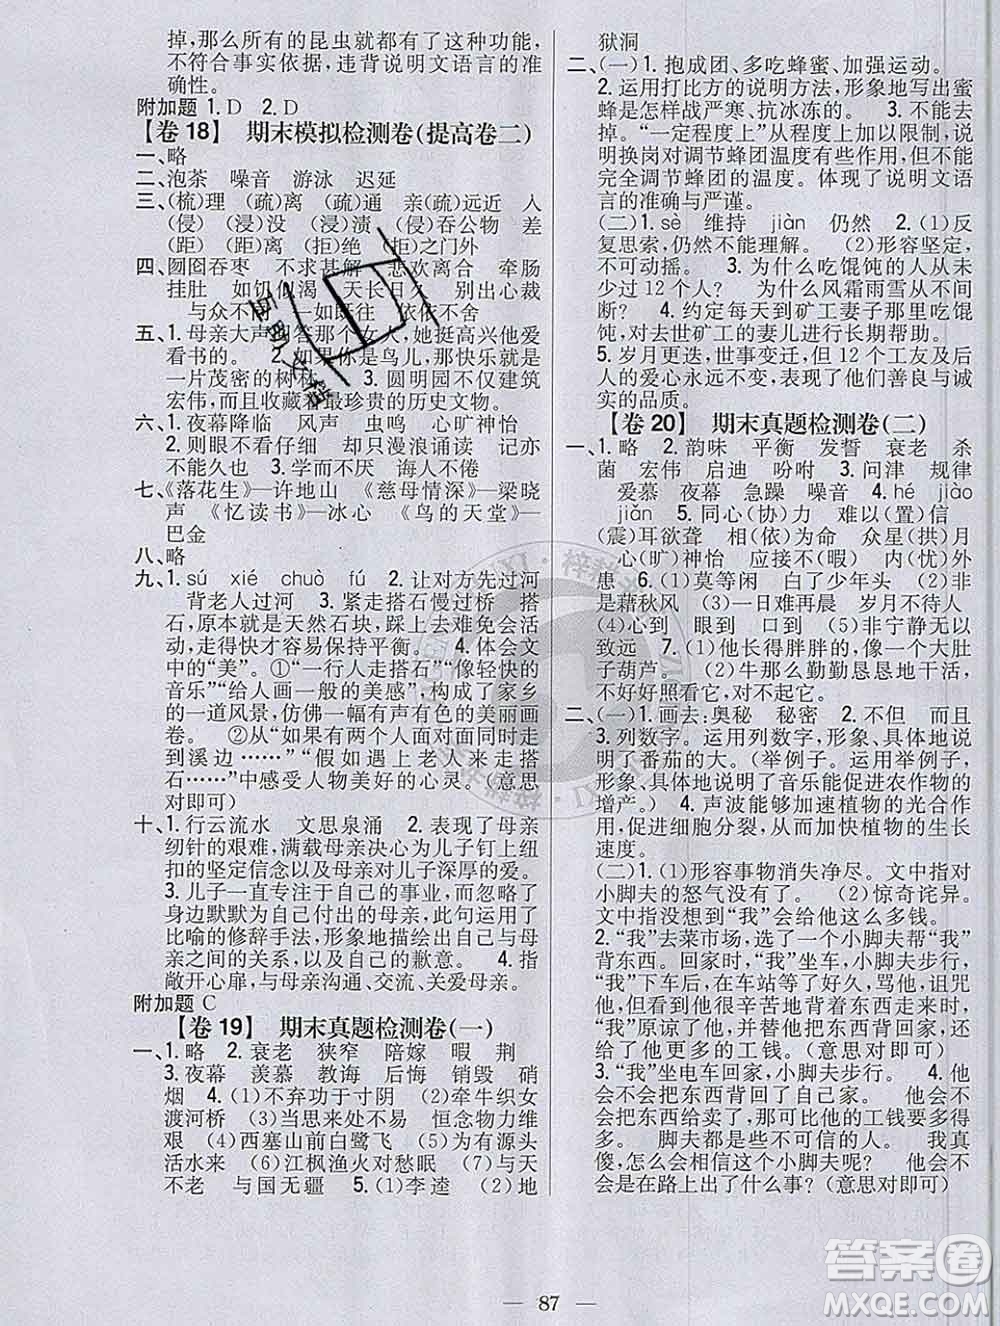 掉,那么所有的昆虫就都有了这种功能,
不符合事实依据,违背说明文语言的准
确性。
附加题 1. D 2. D
【卷 18】 期末模拟检测卷(提高卷二)
一、略
二、泡茶 噪音 游泳 迟延
三、(梳)理 (疏)离 (疏)通 亲(疏)远近 人
(侵) (浸)没 (浸)渍 (侵)吞公物 差
(距) (距)离 (拒)绝 (拒)之门外
四、囫囵吞枣 不求甚解 悲欢离合 牵肠
挂肚 如饥似渴 天长日久 别出心裁
与众不同 一如既往 依依不舍
五、1. 母亲大声回答那个女人,她挺高兴他爱
看书的。 2. 如果你是鸟儿,那快乐就是
一片茂密的树林。 3. 圆明园不仅建筑
宏伟,而且收藏着最珍贵的历史文物。
六、1. 夜幕降临 风声 虫鸣 心旷神怡
2. 则眼不看仔细 却只漫浪诵读 记亦
不能久也 甚于干戈 诲人不倦
七、《落花生》—许地山 《慈母情深》—梁晓
声 《忆读书》—冰心 《鸟的天堂》—
巴金
八、略
九、1. sú xié chuò fú 2. 让对方先过河
背老人过河 3. 紧走搭石慢过桥 搭
石,原本就是天然石块,踩上去难免会活
动,走得快才容易保持平衡。 4. 体会文
中的“美”。①“一行人走搭石”“像轻快的
音乐”“给人画一般的美感”,构成了家乡
的一道风景,仿佛一幅有声有色的美丽画
卷。 ②从“如果有两个人面对面同时
走到溪边……”“假如遇上老人来走搭
石……”中感受人物美好的心灵。(意思
对即可)
十、1. 行云流水 文思泉涌 2. 表现了母亲
纫针的艰难,满载母亲为儿子钉上纽
扣的坚定信念以及母亲对儿子深厚的爱。
3. 儿子一直专注于自己的事业,而忽略了
身边默默为自己付出的母亲,此句运用了
比喻的修辞手法,形象地描绘出自己与母
亲之间的关系,以及自己的歉意。 4. 指
敞开心扉,与母亲沟通、交流、关爱母亲。
附加题 C
【卷 19】 期末真题检测卷(一)
一、1. 略 2. 衰老 狭窄 陪嫁 暇 荆
3. 夜幕 羡慕 教诲 后悔 销毁 硝
烟 4. (1)不弃功于寸阴 (2)牵牛织女
渡河桥 (3)当思来处不易 恒念物力维
艰 (4)西塞山前白鹭飞 (5)为有源头
活水来 (6)江枫渔火对愁眠 (7)与天
不老 与国无疆 5. (1)李逵 (2)地
狱洞
二、(一)1. 抱成团、多吃蜂蜜、加强运动。
2. 运用打比方的说明方法,形象地写出蜜
蜂是怎样战严寒、抗冰冻的。
3. “一定程度上”从程度上加以限制,说
明换岗对调节蜂团温度有些作用,但不能
完全调节蜂团的温度。体现了说明文语言
的准确与严谨。
(二)1. sè 维持 jiàn 仍然 2. (1)反
复思索,仍然不能理解。 (2)形容坚定,不
可动摇。 3. 为什么吃馄饨的人从未
少过 12 个人? 为什么风霜雨雪从不间
断? 4. 约定每天到矿工妻子那里吃馄
饨,以对去世矿工的妻儿进行长期帮助。
5. 岁月更迭,世事变迁,但 12 个工友与嘉川
的爱心永远不变。赞美了他们善良与诚
实的品质。
【卷 20】 期末真题检测卷(二)
一、1. 略 2. 韵味 平衡 发誓 衰老 杀
菌 宏伟 启迪 吩咐 3. 问津 规律
爱慕 夜幕 急躁 噪音 4. hé jiào
jiǎn 5. 同心(协)力 难以(置)信
(震)耳欲聋 相依为命 众星(拱)月
心(旷)神怡 应接不(暇) 内(忧)外
患 6. (1)莫等闲 白了少年头 (2)非
是藉秋风 (3)一日难再晨 岁月不待人
(4)心到 眼到 口到 (5)非宁静无以
致远 7. (1)他们长得胖胖的,像一个大肚
子葫芦。 (2)牛那么勤勤恳恳地干活,
不好好照看它,对不起它。
二、(一)1. 画去:奥秘 秘密 2. 不但 而且
3. 列数字。运用列数字,形象、具体地说
明了番茄的大。(举例子。运用举例子,
形象、具体地说明了音乐能促进农作物的
增产。) 4. 声波能够加速植物的光合作
用,促进细胞分裂,从而加快植物的生长
速度。
(二)1. (1)形容事物消失净尽。文中指对
小脚夫的怒气没有了。 (2)惊奇诧异。
文中指没想到“我”会给他这么多钱。
2. “我”去菜市场,选了一个小脚夫帮“我”
背东西。回家时,“我”坐车,他走路。
“我”下车后,在车站等了好久,骂他,诅咒
他,但他很辛苦地背着东西走来了,
“我”原谅了他,让他把东西背回家,并
给了他更多的工钱。(意思对即可)
3. “我”坐电车回家,小脚夫走路。 他会
把东西背回了自己家。 4. 他会
把东西卖了,得的钱要比他的工钱要多得
多。 脚夫都是些不可信的人。 我真
傻,怎么会相信小脚夫呢? 他会不会
是在路上出了什么事?(意思对即可)
— 87 —
答案圈
MXQE.COM